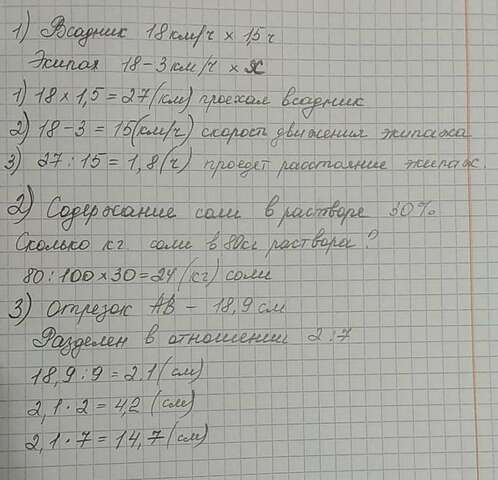 1) Всадник 18 км/ч × 1,5 ч
Экипаж 18 - 3 км/ч × x
1) 18 × 1,5 = 27 (км) проехал всадник
2) 18 - 3 = 15 (км/ч) скорость движения экипажа
3) 27 : 15 = 1,8 (ч) проедет расстояние экипаж.
2) Содержание соли в растворе 30%
Сколько кг соли в 80кг раствора?
80 : 100 × 30 = 24 (кг) соли
3) Отрезок AB - 18,9 см
Разделен в отношении 2 : 7
18,9 : 9 = 2,1 (см)
2,1 · 2 = 4,2 (см)
2,1 · 7 = 14,7 (см)